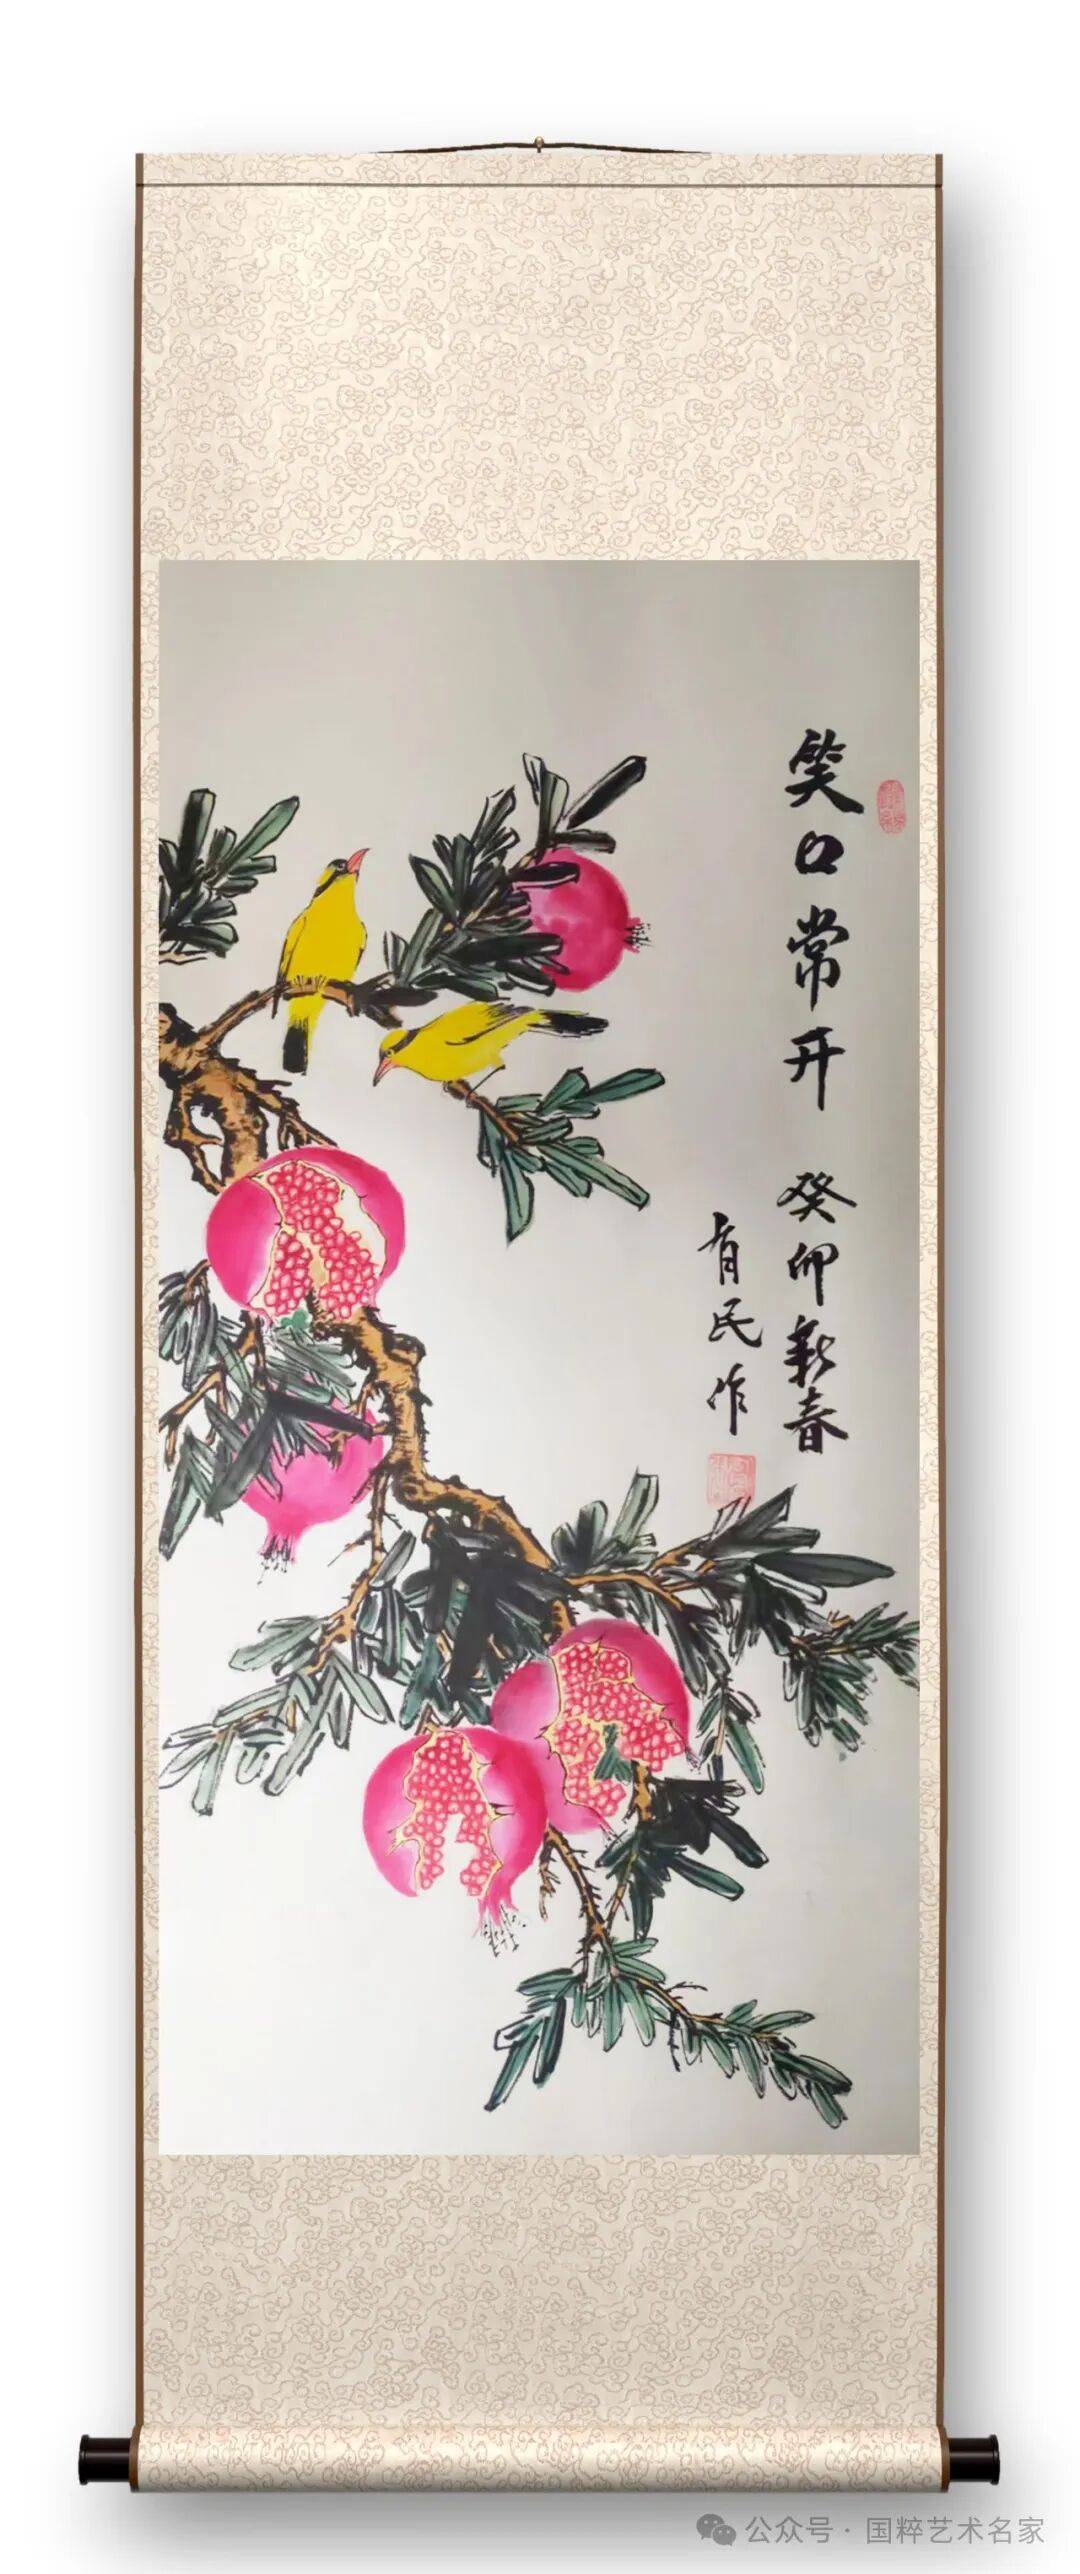 笑口常开 癸卯新春
有民作
公众号·国粹艺术名家